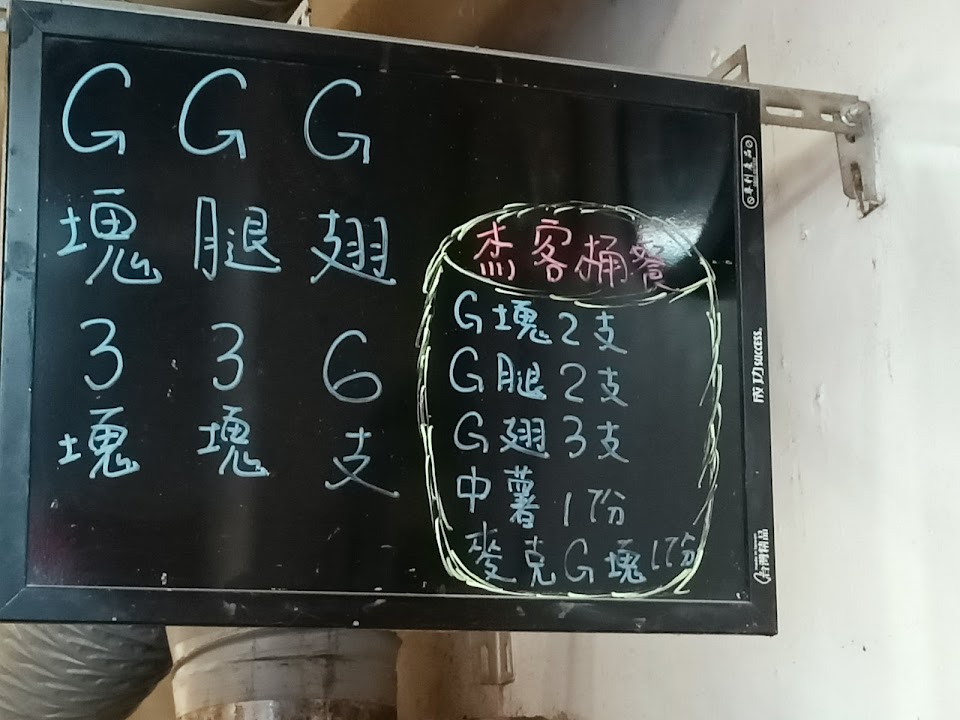 G塊3塊
G腿3塊
G翅6支
杰客桶餐
G塊2支
G腿2支
G翅3支
中薯1份
麥克G塊1份
專利產品
成功 SUCCESS.
台灣精品